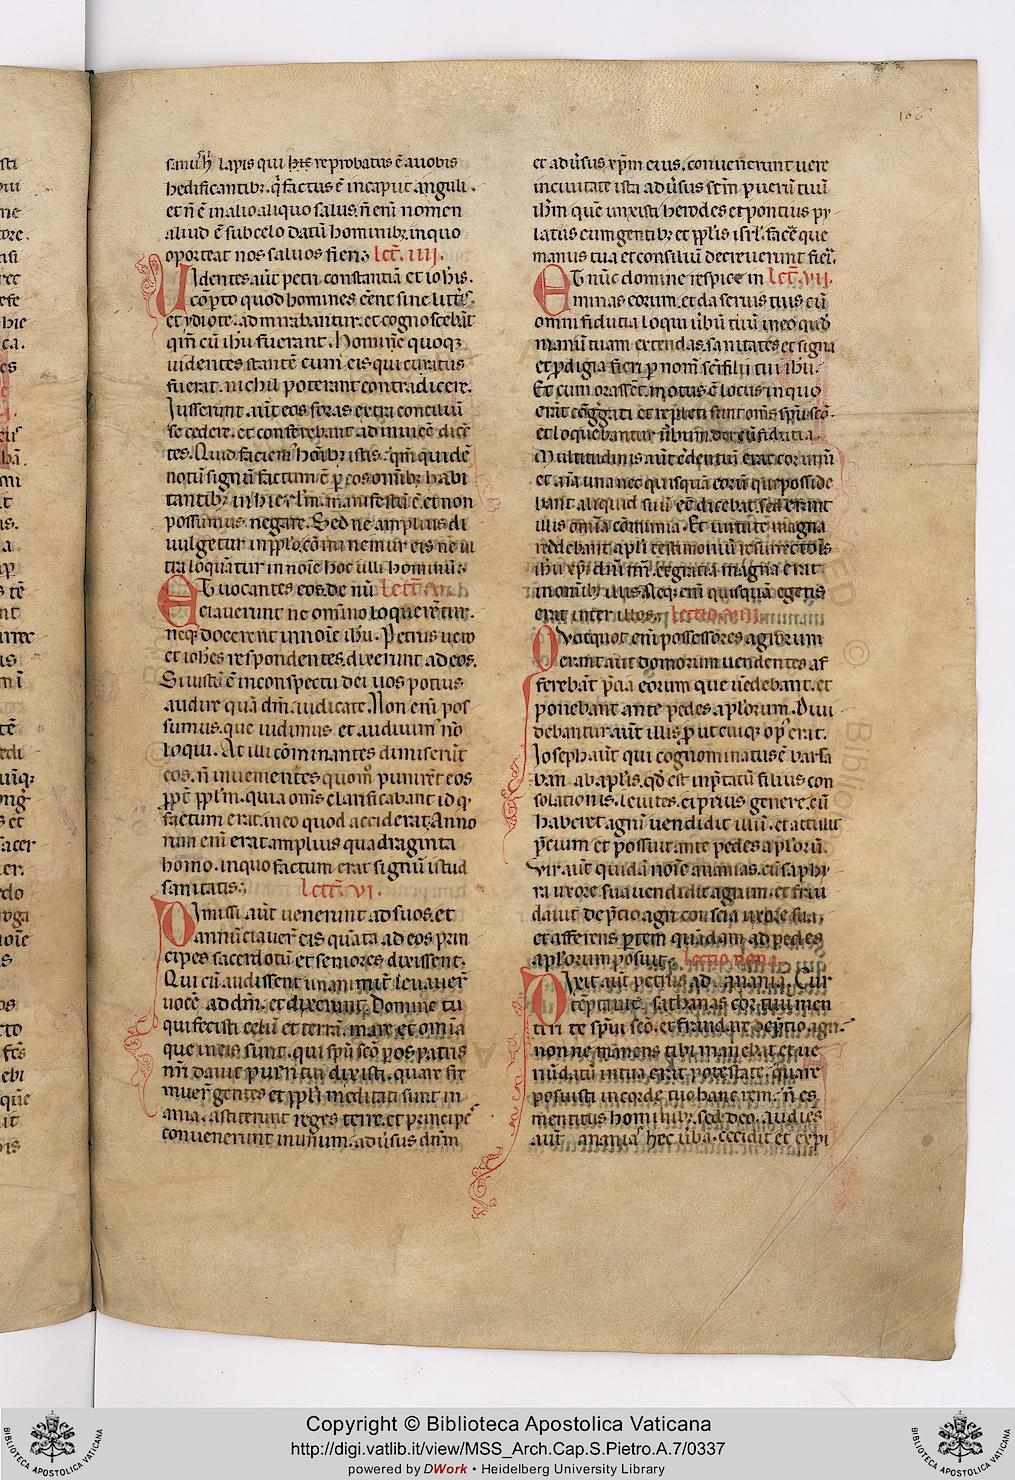 166
sanus. hic lapis qui hic reprobatus ē a uobis
hedificantibꝫ. q̄ factus ē in caput anguli.
et n̄ ē in alio aliquo salus. n̄ eni nomen
aliud ē sub celo datū hominibꝫ. in quo
oporteat nos saluos fieri. lect̄. iiij.
Uidentes aūt petri constantiā et ioh̄is.
cōp̄to quod homines eēnt sine litt̄is
et ydiote. admirabantur. et cognoscebāt
qm̄ cū ih̄u fuerant. Hominē quoqꝫ
uidentes stantē cum eis qui curatus
fuerat. nichil poterant contradicere.
Iusserunt aūt eos foras extra conciliū
secedere. et conferebant ad inuicē dicē
tes. Quid faciem̄ ho͞ibꝫ istis. qm̄ quidē
notū signū factum ē p eos omībꝫ habi
tantibꝫ in hierl̄m. manifestū ē. et non
possumus negare. Sed ne amplius di
uulgetur in ppl̄o. cōminemur eis ne ul
tra loquātur in noīe hoc ulli hominū.
Et uocantes eos. denū lect̄. v.
ciauerunt ne omīno loquerētur.
neqꝫ docerent in noīe ih̄u. Petrus uero
et ioh̄es respondentes. dixerunt ad eos.
Si iustū ē in conspectu dei uos potius
audire quā dm̄. iudicate. Non eni pos
sumus. que uidimus et audiuim̄ nō
loqui. At illi cōminantes dimiserūt
eos. n̄ inuenientes quom̊ punirēt eos
ppt̄ ppl̄m. quia oms̄ clarificabant id q̄
factum erat. in eo quod acciderat. Anno
rum eni erat amplius quadraginta
homo. in quo factum erat signū istud
sanitatis. lect̄. vi.
Dimissi aūt uenerunt ad suos. et
annūciauer̄ eis quāta ad eos prin
cipes sacerdotū et seniores dixissent.
Qui cū audissent unanimit̄ leuauer̄
uocē ad dm̄. et dixerunt. Domine tu
qui fecisti celū et terrā. mare et omīa
que in eis sunt. qui spū sc̄o p os patris
nr̄i dauit pueri tui dixisti. quare fre
muer̄ gentes et ppl̄i meditati sunt in
ania. astiterunt reges terre. et principes
conuenerunt in unum. adusus dnm̄
et adūsus xp̄m eius. conuenerunt uere
in ciuitate ista adūsus sc̄m puerū tuū
ih̄m quē unxisti herodes et pontius py
latus cum gentibꝫ et ppl̄is isrl̄. facē que
manus tua et consiliū decreuerunt fieri.
Et nūc domine respice in lect̄. vii.
minas eorum. et da seruis tuis cū
omni fidutia loqui ūbū tuū in eo quod
manū tuam extendas. sanitates et signa
et pdigia fieri p nom̄ sc̄i filii tui ih̄u.
Et cum orassēt. motus ē locus in quo
erāt cōggati et repleti sunt oms̄ spū sc̄o.
et loquebantur ūbum dei cū fidutia.
Multitudinis aūt credentiū erat cor unū
et aīa una. nec quisquā eorū que posside
bant aliquid suū eē dicebat. sed erant
illis omīa cōmunia. Et uirtute magna
reddebant apl̄i testimoniū resurrectiōis
ih̄u xp̄i dn̄i nr̄i. et gratia magna erat
in omībꝫ illis. Neqꝫ eni quisquā egens
erat inter illos. lectio. viii.
Quotquot eni possessores agrorum
erant aut domorum. uendentes af
ferebāt pcia eorum que uēdebant. et
ponebant ante pedes apl̄orum. Diui
debantur aūt illis put cuiqꝫ op̄ erat.
Ioseph aūt qui cognominatus ē barsa
ban ab apl̄is. qd̄ est inp̄tatū filius con
solationis. leuites. ciprius genere. cū
haberet agrū uendidit illū. et attulit
pcium et posuit ante pedes apl̄orū.
Vir aūt quidā noīe ananias. cū saphi
ra uxore sua uendidit agrum. et frau
dauit de pcio agri conscia uxore sua.
et afferens ptem quādam. ad pedes
apl̄orum posuit. lectio nona.
Dixit aūt petrus ad anania. Cur
tēptauit sathanas cor tuū men
tiri te spūi sc̄o. et fraudare de pcio agri.
nonne manens tibi manebat. et ue
nūdatū in tua erat potestate. quare
posuisti in corde tuo hanc rem. n̄ es
mentitus hominibꝫ. sed deo. Audies
aūt ananias hec ūba. cecidit et expi
Copyright © Biblioteca Apostolica Vaticana
http://digi.vatlib.it/view/MSS_Arch.Cap.S.Pietro.A.7/0337
powered by DWork • Heidelberg University Library
BIBLIOTECA APOSTOLICA VATICANA
BIBLIOTECA APOSTOLICA VATICANA